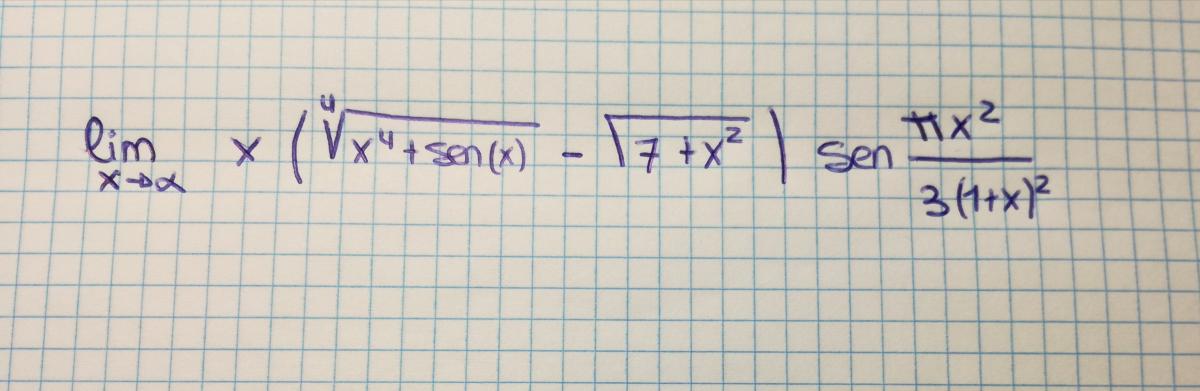 lim x→∝ x ( ∜(x⁴ + sen(x)) − √(7 + x²) ) sen πx² / 3(1+x)²